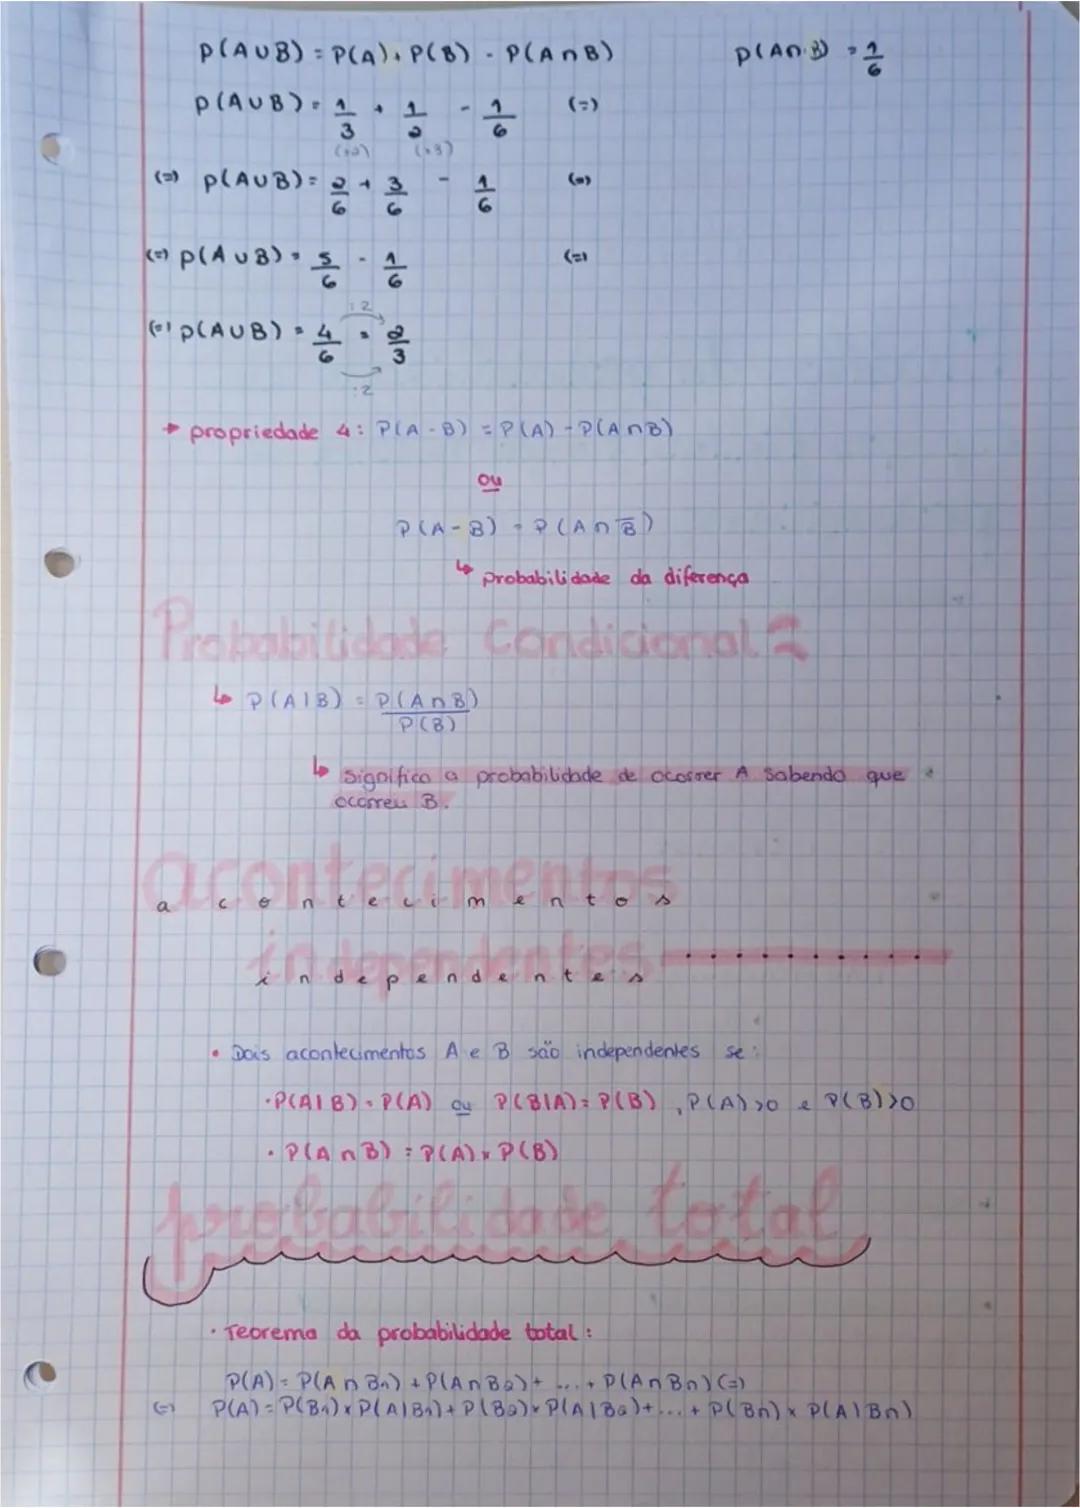 P(A∪B) = P(A) + P(B) - P(A∩B)    P(A∩B) = 1/6
P(A∪B) = 1/3 + 1/2 - 1/6 (=)
(×2) (×3)
(=) P(A∪B) = 2/6 + 3/6 - 1/6 (=)
(=) P(A∪B) = 5/6 - 1/6 (=)
:2
(=) P(A∪B) = 4/6 = 2/3
:2
→ propriedade 4: P(A-B) = P(A) - P(A∩B)
ou
P(A-B) = P(A∩B̅)
↳ probabilidade da diferença
Probabilidade Condicional
↳ P(A|B) = P(A∩B)/P(B)
↳ significa a probabilidade de ocorrer A sabendo que
ocorreu B.
acontecimentos
acontecimentos
independentes
independentes
• Dois acontecimentos A e B são independentes se:
• P(A|B) = P(A) ou P(B|A) = P(B), P(A)>0 e P(B)>0
• P(A∩B) = P(A) × P(B)
probabilidade total
• Teorema da probabilidade total:
P(A) = P(A∩B1) + P(A∩B2) + ... + P(A∩Bn) (=)
(=) P(A) = P(B1) × P(A|B1) + P(B2) × P(A|B2) + ... + P(Bn) × P(A|Bn)